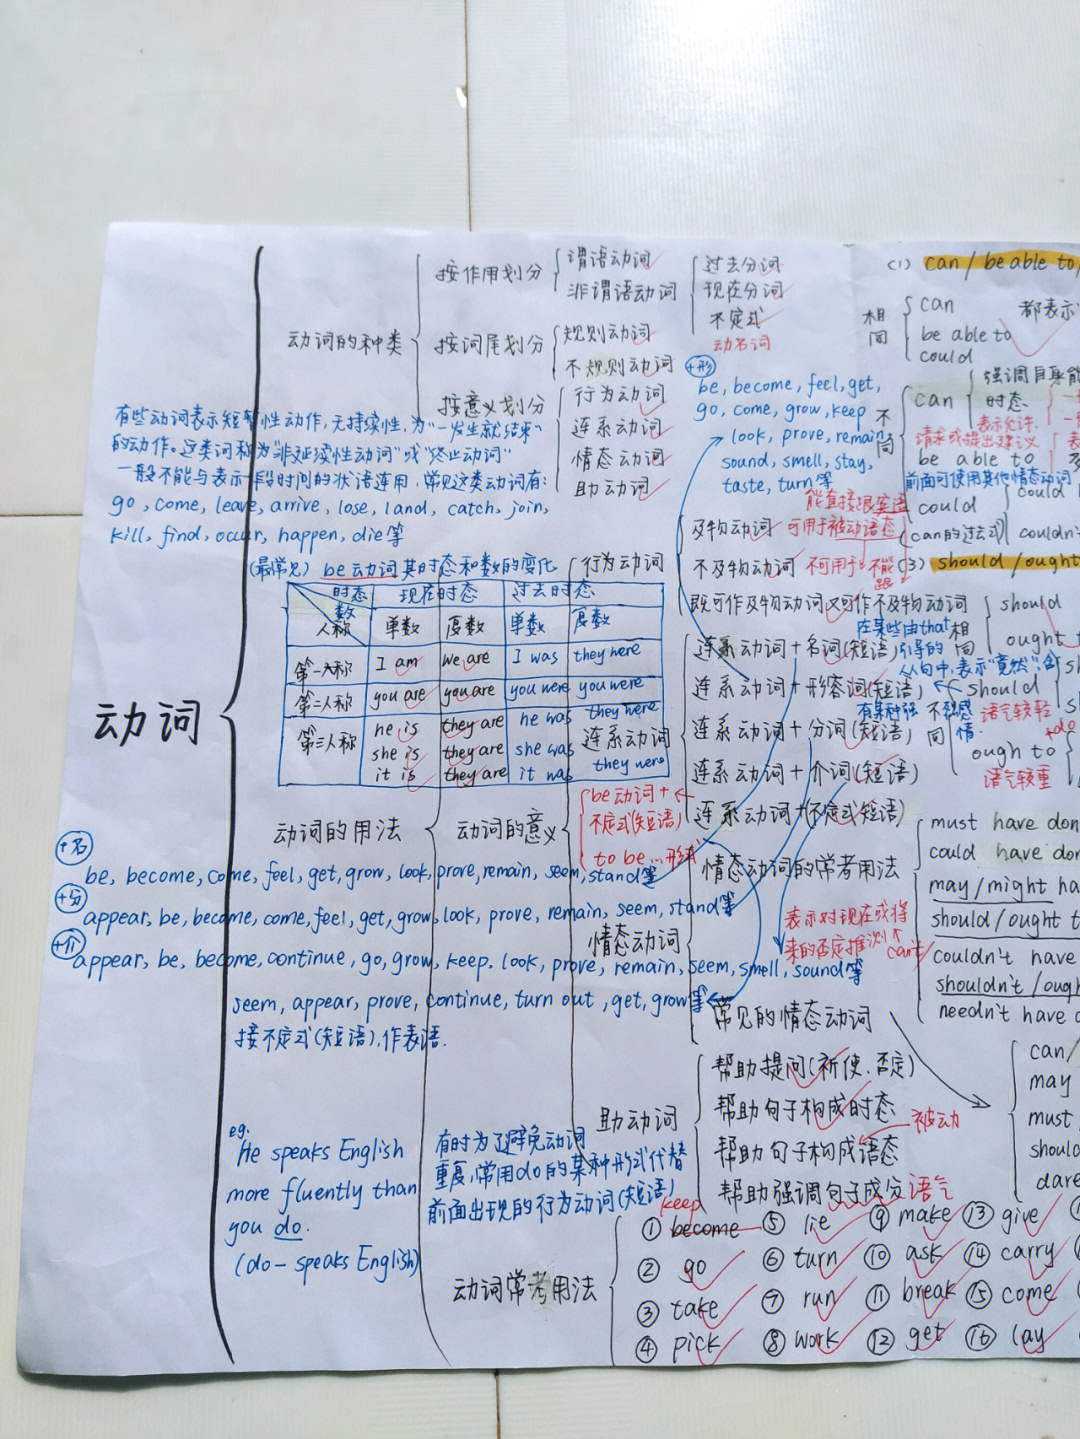 动词
动词的种类
按作用划分
谓语动词
非谓语动词
过去分词
现在分词
不定式
动名词
按词尾划分
规则动词
不规则动词
按意义划分
行为动词
连系动词
情态动词
助动词
有些动词表示短暂性动作,无持续性,为“一发生就结束”
的动作。这类词称为“非延续性动词”或“终止动词”
一般不能与表示一段时间的状语连用,常见这类动词有:
go, come, leave, arrive, lose, land, catch, join,
kill, find, occur, happen, die等
(最常见) be动词其时态和数的变化
时态 现在时态 过去时态
数
人称 单数 复数 单数 复数
第一人称 I am we are I was they were
第二人称 you are you are you were you were
第三人称 he is they are he was they were
she is they are she was they were
it is they are it was
动词的用法
动词的意义
行为动词
及物动词 可用于被动语态
能直接跟宾语
不及物动词 不可用于 不能
跟
既可作及物动词又可作不及物动词
连系动词
连系动词+名词(短语)
连系动词+形容词(短语)
连系动词+分词(短语)
连系动词+介词(短语)
连系动词+不定式(短语)
be动词+
不定式(短语)
to be...形式
+形
be, become, feel, get,
go, come, grow, keep
look, prove, remain
sound, smell, stay,
taste, turn等
+名
be, become, come, feel, get, grow, look, prove, remain, seem, stand等
+分
appear, be, become, come, feel, get, grow, look, prove, remain, seem, stand等
+介
appear, be, become, continue, go, grow, keep, look, prove, remain, seem, smell, sound等
seem, appear, prove, continue, turn out, get, grow等
接不定式(短语),作表语.
情态动词
情态动词的常考用法
表示对现在或将
来的否定推测 can't
常见的情态动词
助动词
帮助提问(祈使、否定)
帮助句子构成时态
帮助句子构成语态 被动
帮助强调句子成分 语气
eg:
He speaks English
more fluently than
you do.
(do – speaks English)
有时为了避免动词
重复,常用do的某种形式代替
前面出现的行为动词(短语)
动词常考用法
keep
① become ⑤ lie ⑨ make ⑬ give
② go ⑥ turn ⑩ ask ⑭ carry
③ take ⑦ run ⑪ break ⑮ come
④ pick ⑧ work ⑫ get ⑯ lay
(1) can / be able to
相
同
can
be able to
could
都表示
不
同
can
强调自身能
时态
表示允许、
请求或提出建议
be able to
前面可使用其他情态动词
could
(can的过去式)
could
couldn't
(3) should /ought
相
同
should
ought t
在某些由that
引导的
从句中,表示“竟然”含
有某种强
感
情.
不
同
should
语气较轻
ough to
语气较重
must have don
could have don
may/might ha
should/ought t
couldn't have
shouldn't /ough
needn't have d
can/
may
must
shoul
dare